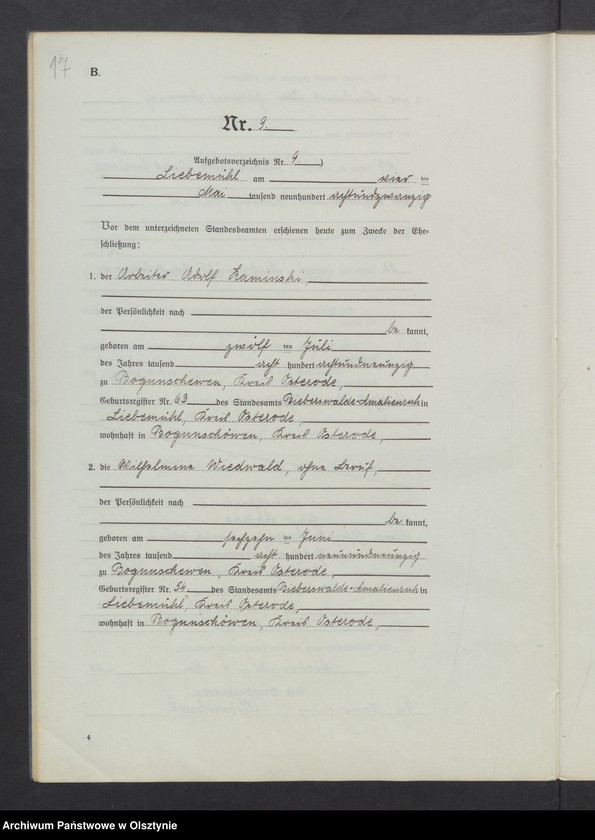 17
B.
Nr. 9.
Aufgebotsverzeichnis Nr. 9.)
Liebemühl am vier ten
Mai tausend neunhundert achtundzwanzig
Vor dem unterzeichneten Standesbeamten erschienen heute zum Zwecke der Ehe-
schließung:
1. der Arbeiter Adolf Kaminski,
der Persönlichkeit nach
be kannt,
geboren am zwölf ten Juli
des Jahres tausend acht hundert achtundneunzig
zu Bogunschewen, Kreis Osterode,
Geburtsregister Nr. 63 des Standesamts Bieberswalde-Amalienruh in
Liebemühl, Kreis Osterode,
wohnhaft in Bogunschöwen, Kreis Osterode,
2. die Wilhelmine Wiedwald, ohne Beruf,
der Persönlichkeit nach
be kannt,
geboren am sechzehn ten Juni
des Jahres tausend acht hundert neunundneunzig
zu Bogunschewen, Kreis Osterode,
Geburtsregister Nr. 54 des Standesamts Bieberswalde-Amalienruh in
Liebemühl, Kreis Osterode,
wohnhaft in Bogunschöwen, Kreis Osterode,
4
Archiwum Państwowe w Olsztynie